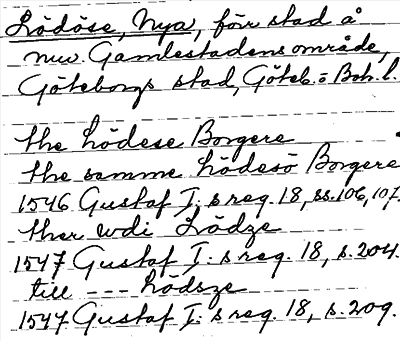 Lödöse, Nya, förr stad å
nuv. Gamlestadens område,
Göteborgs stad, Göteb. o Boh. l.
the Lödese Borgere
the samme Lödesö Borgere
1546 Gustaf I: s reg. 18, ss. 106, 107.
ther wdi Lödze
1547 Gustaf I: s reg. 18, s. 204.
till --- Lödsze
1547 Gustaf I: s reg. 18, s. 209.